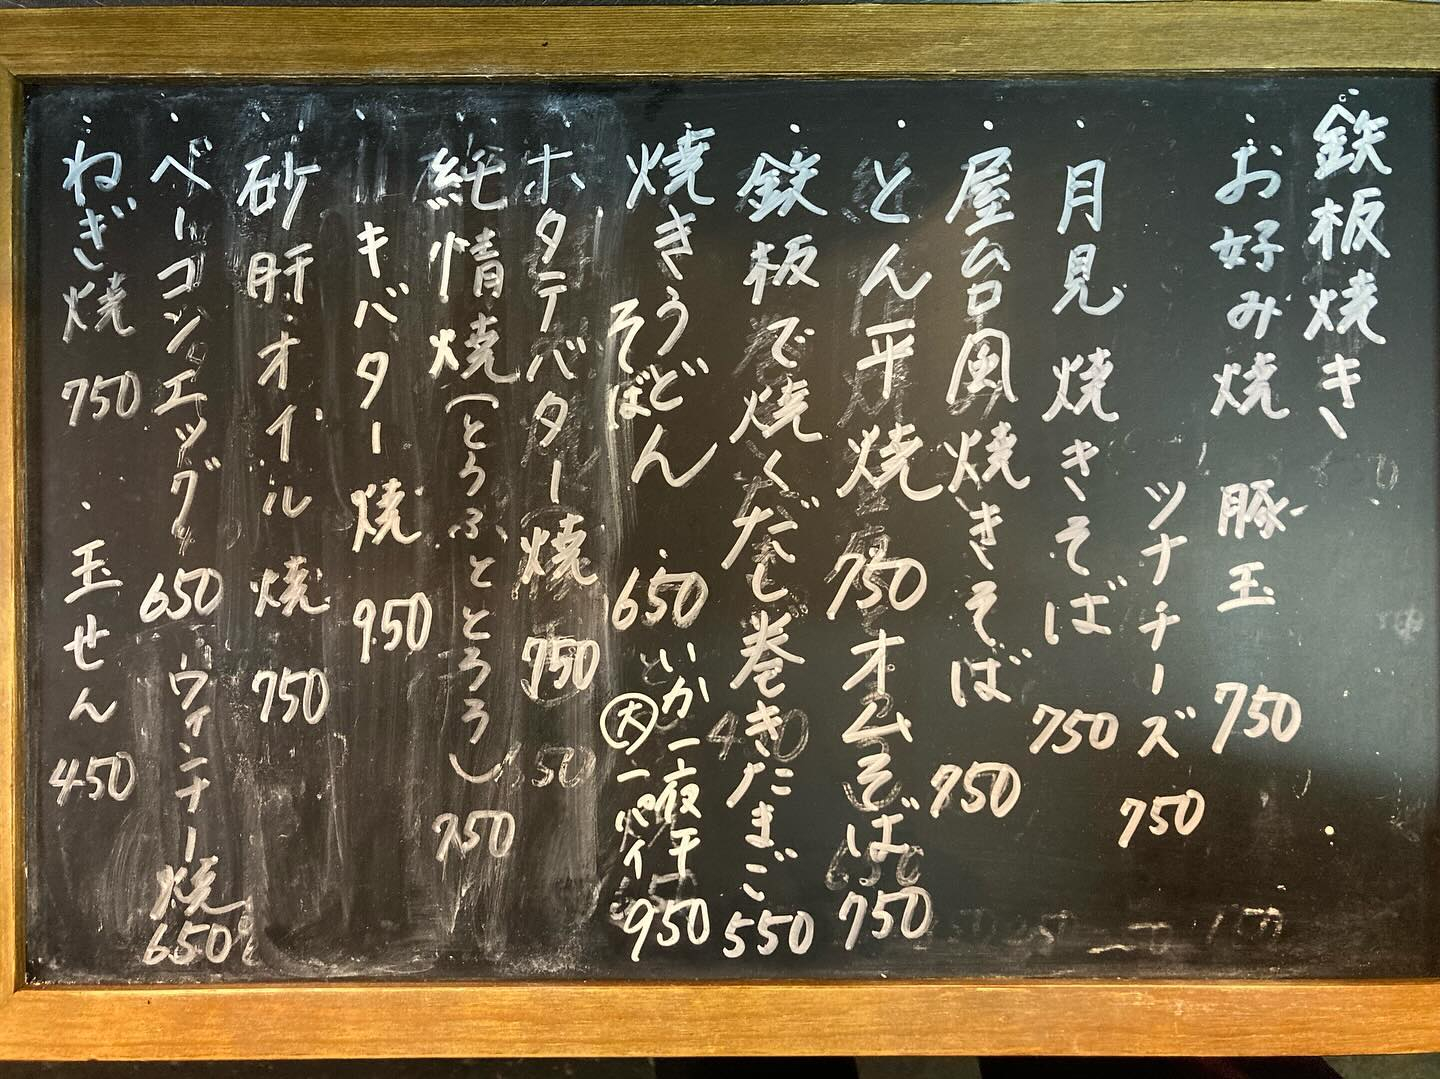 鉄板焼き
お好み焼 豚玉 750
ツナチーズ 750
月見焼きそば 750
屋台風焼きそば 750
とん平焼 750
オムそば 750
鉄板で焼くだし巻きたまご 550
焼きうどん 650
そば
いか一夜干
大一パイ 950
ホタテバター焼 750
純情焼(とうふととろろ) 750
キバター焼 950
砂肝オイル焼 750
ベーコンエッグ 650
ウィンナー焼 650
ねぎ焼 750
玉せん 450